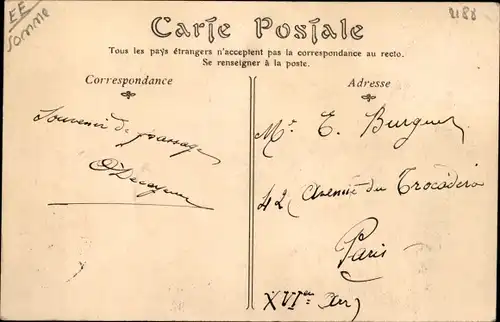 EE
Somme
2188
Carte Postale
Tous les pays étrangers n'acceptent pas la correspondance au recto.
Se renseigner à la poste.
Correspondance
Souvenir de passage
Adresse
Mr E. Burguer
42 Avenue du Trocadéro
Paris
XVIe Arr